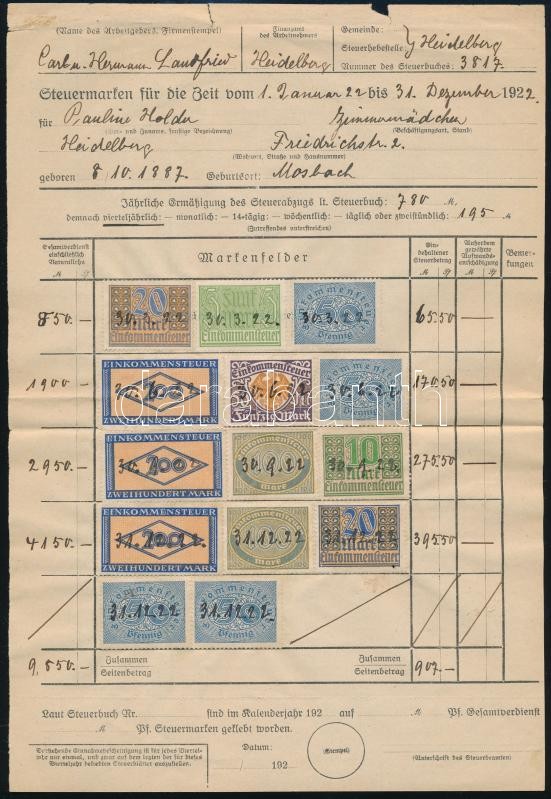 (Name des Arbeitgebers, Firmenstempel)
Carl u. Hermann Landfried
Finanzamt des Arbeitnehmers
Heidelberg
Gemeinde:
Steuerhebestelle: } Heidelberg
Nummer des Steuerbuches: 3817.
Steuermarken für die Zeit vom 1. Januar 22 bis 31. Dezember 1922
für Pauline Holder Zimmermädchen
(Vor- und Zuname, sonstige Bezeichnung) (Beschäftigungsart, Stand)
Heidelberg Friedrichstr. 2.
(Wohnort, Straße und Hausnummer)
geboren 8.10.1887. Geburtsort: Mosbach
Jährliche Ermäßigung des Steuerabzugs lt. Steuerbuch: 780 M,
demnach vierteljährlich — monatlich — 14-tägig — wöchentlich — täglich oder zweistündlich: 195 M
(Zutreffendes unterstreichen)
Gesamtverdienst einschließlich Naturalbezüge
M Pf
Markenfelder
Einbehaltener Steuerbetrag
M Pf
Außerdem gewährte Aufwandsentschädigung
M Pf
Bemerkungen
850.— 65.50
20 Mark Einkommensteuer 30.3.22.
Fünf 30.3.22.
Einkommensteuer 50 Pfennig 30.3.22
1900— 170.50
EINKOMMENSTEUER ZWEIHUNDERT MARK
Einkommensteuer Fünfzig Mark 30.6.22
Einkommensteuer Pfennig
2950.— 275.50
EINKOMMENSTEUER 200 ZWEIHUNDERT MARK
Einkommensteuer Mark 30.9.22
10 Mark Einkommensteuer 30.9.22.
4150.— 395.50
EINKOMMENSTEUER 200 ZWEIHUNDERT MARK
Einkommensteuer Mark 31.12.22
20 Mark Einkommensteuer 31.12.22
Einkommensteuer 50 Pfennig 31.12.22
Einkommensteuer 50 Pfennig 31.12.22.
9.850— Zusammen Seitenbetrag Zusammen Seitenbetrag 907.—
Laut Steuerbuch Nr. sind im Kalenderjahr 192 auf M Pf. Gesamtverdienst
M Pf. Steuermarken geklebt worden.
Vorstehende Einnahmebescheinigung ist für jedes Vierteljahr nur einmal, und zwar auf dem letzten der für dieses Vierteljahr beklebten Steuerblätter auszufüllen.
Datum:
192
(Stempel)
(Unterschrift des Steuerbeamten)
darabanth